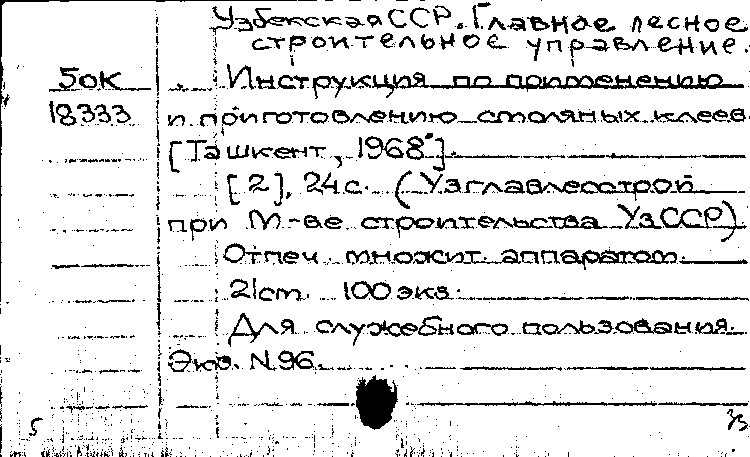 Узбекская ССР. Главное лесное
строительное управление.
50К
18333
Инструкция по применению
и приготовлению столярных клеев.
[Ташкент, 1968].
[2], 24 с. (Узглавлесстрой
при М-ве строительства УзССР)
Отпеч. множит. аппаратом.
21 cm. 100 экз.
Для служебного пользования.
Экз. N 96.
5